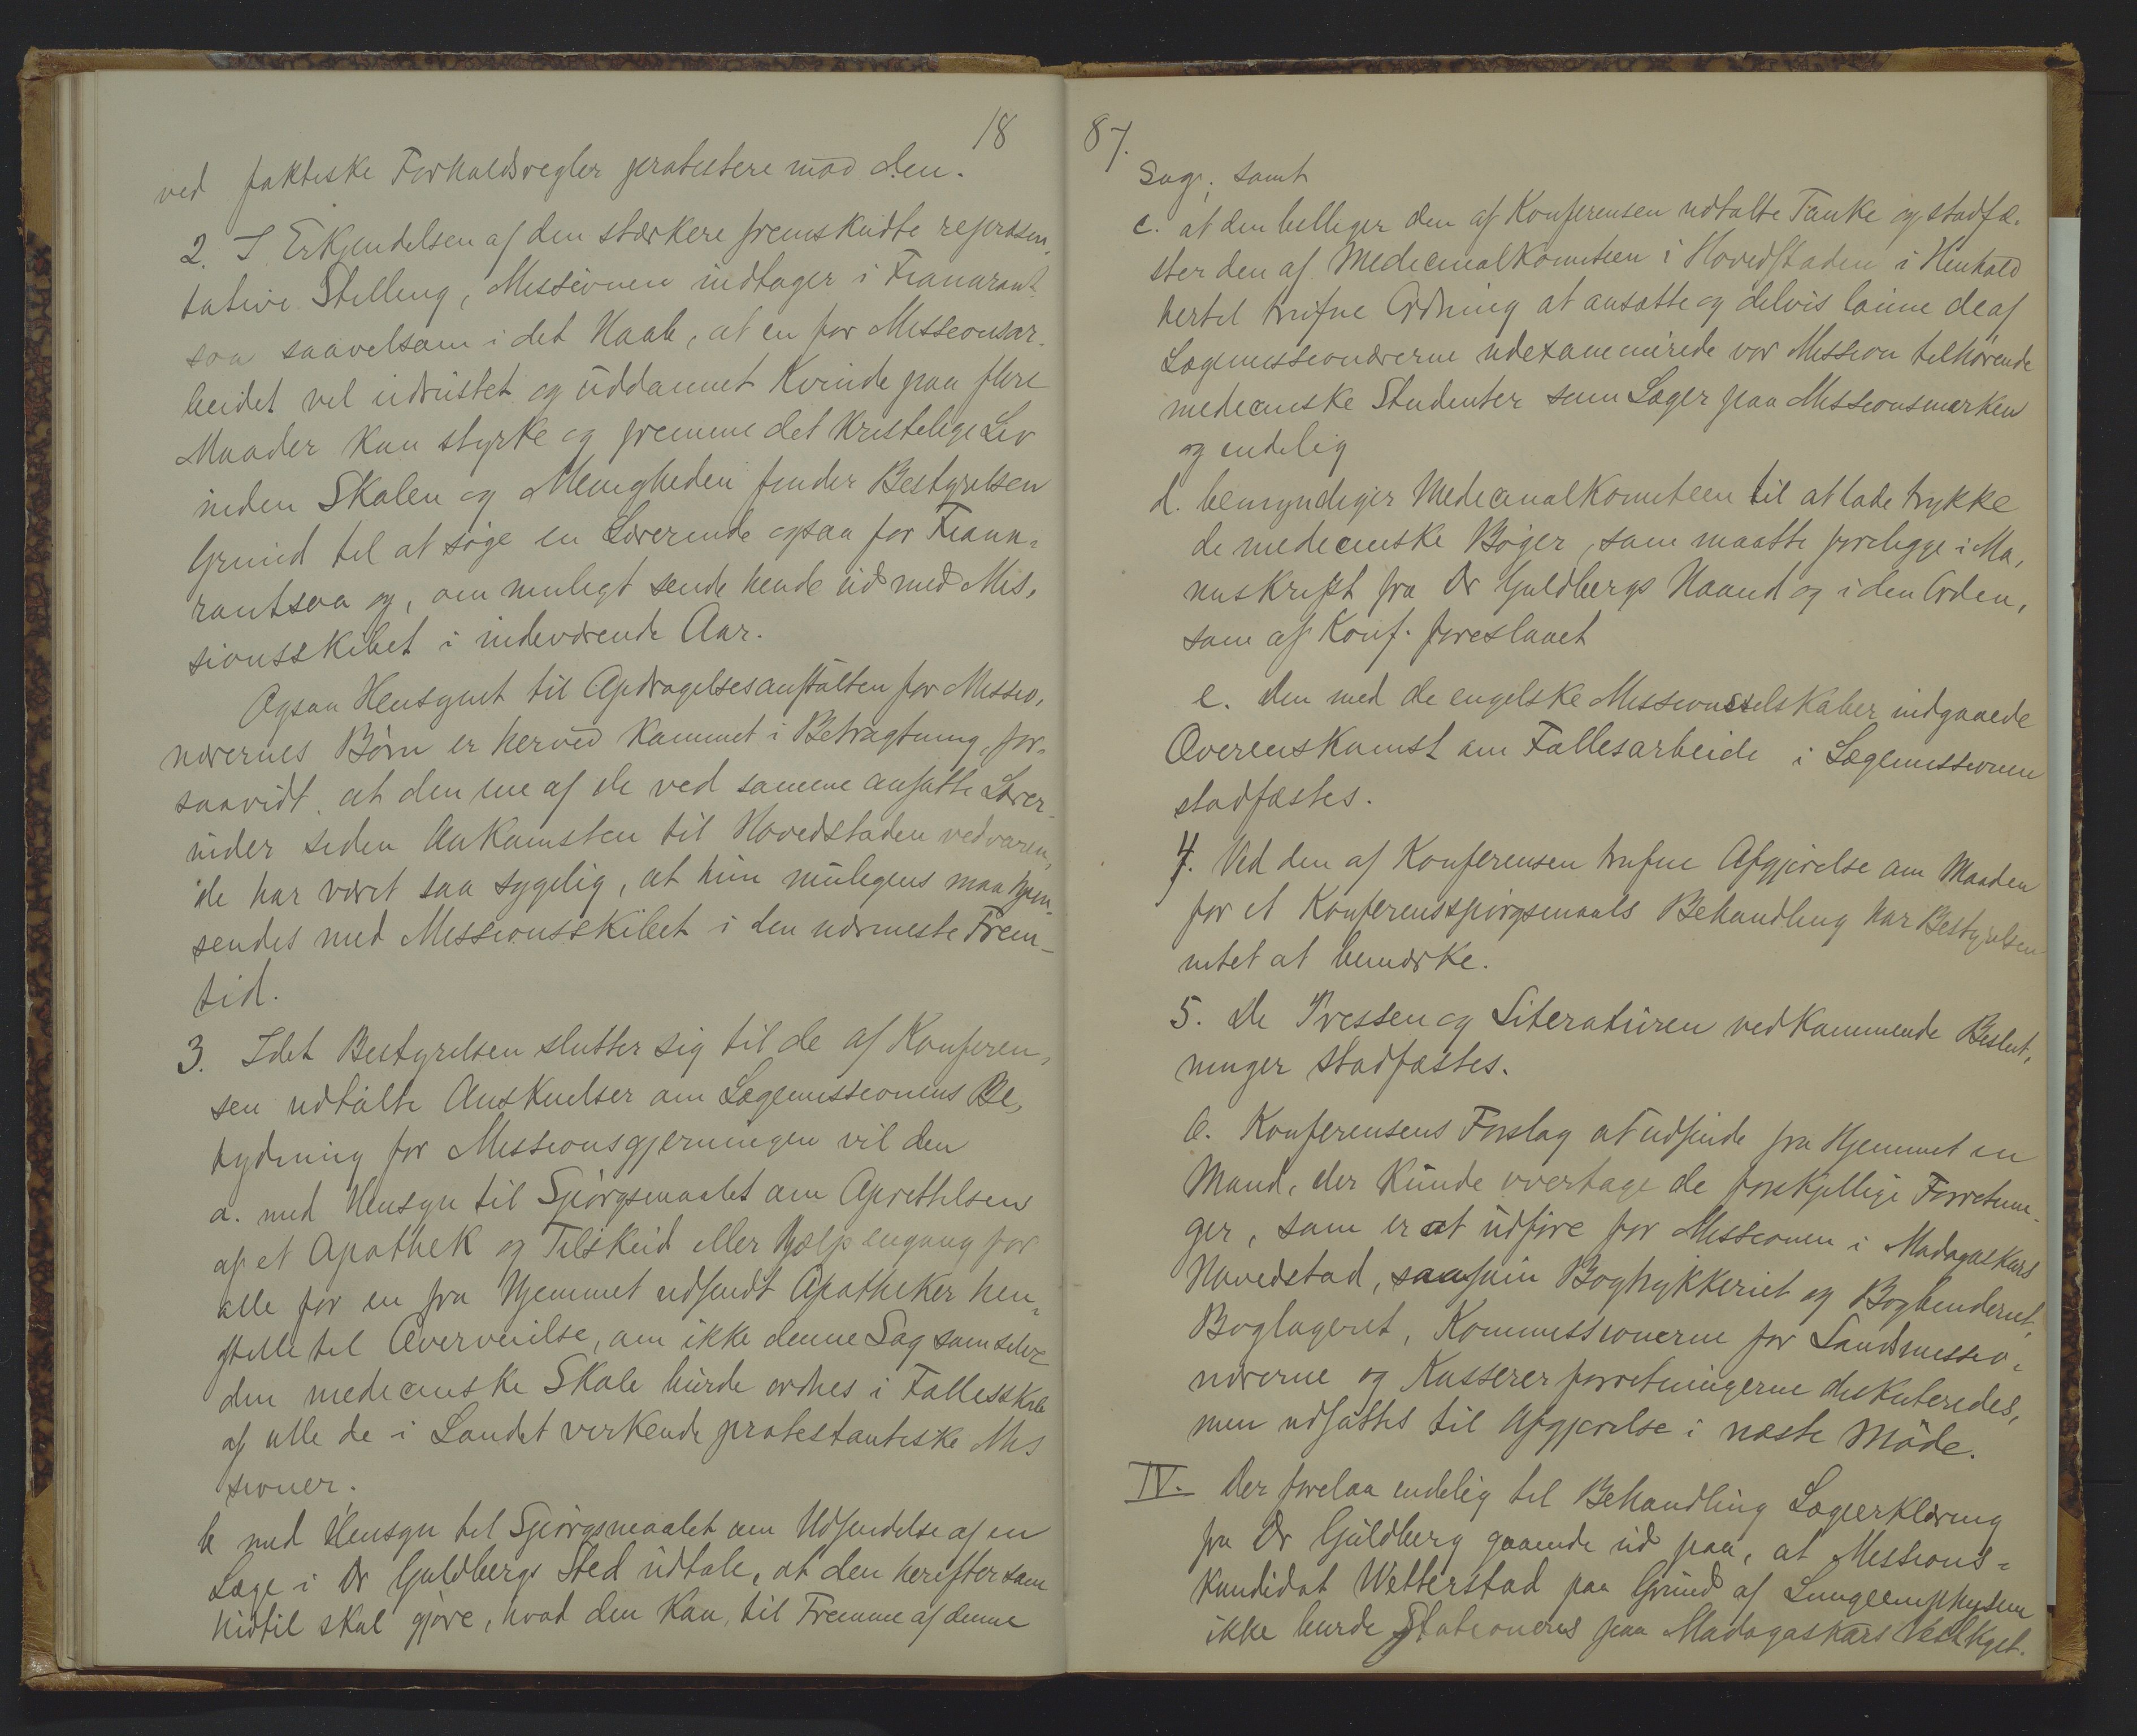 18
ved faktiske Forholdsregler protestere mod den.
2. I Erkjendelsen af den stærkere fremskudte repræsen-
tative Stilling, Missionen indtager i Fianarant-
soa saavelsom i det Haab, at en for Missionsar-
beidet vel udrustet og uddannet Kvinde paa flere
Maader kan styrke og fremme det kristelige Liv
inden Skolen og Menigheden finder Bestyrelsen
Grund til at søge en Lærerinde ogsaa for Fiana-
rantsoa og, om muligt sende hende ud med Mis-
sionsskibet i indeværende Aar.
Ogsaa Hensynet til Opdragelsesanstalten for Missio-
nærernes Børn er herved kommet i Betragtning, for-
saavidt at den ene af de ved samme ansatte Lærer-
inder siden Ankomsten til Hovedstaden vedvaren-
de har været saa sygelig, at hun muligens maa hjem-
sendes med Missionsskibet i den nærmeste Frem-
tid.
3. Idet Bestyrelsen slutter sig til de af Konferen-
sen udtalte Anskuelser om Lægemissionens Be-
tydning for Missionsgjerningen vil den
a. med Hensyn til Spørgsmaalet om Oprettelsen
af et Apothek og Tilskud eller Hjælp engang for
alle for en fra Hjemmet udsendt Apotheker hen-
stille til Overveielse, om ikke denne Sag som selve
den medicinske Skole burde ordnes i Fællesskab
af alle de i Landet virkende protestantiske Mis
sioner.
b med Hensyn til Spørgsmaalet om Udsendelse af en
Læge i Dr Guldbergs Sted udtale, at den herefter som
hidtil skal gjøre, hvad den kan, til Fremme af denne
87.
Sag; samt
c. at den billiger den af Konferensen udtalte Tanke og stadfæ-
ster den af Medicinalkomiteen i Hovedstaden i Henhold
hertil trufne Ordning at ansætte og delvis lønne de af
Lægemissionærerne udexaminerede vor Mission tilhørende
medicinske Studenter som Læger paa Missionsmarken
og endelig
d. bemyndiger Medicinalkomiteen til at lade trykke
de medicinske Bøger, som maatte foreligge i Ma-
nuskript fra Dr Guldbergs Haand og i den Orden,
som af Konf. foreslaaet
e. Den med de engelske Missionsselskaber indgaaede
Overenskomst om Fællesarbeide i Lægemissionen
stadfæstes.
4. Ved den af Konferensen trufne Afgjørelse om Maaden
for et Konferensspørgsmaals Behandling har Bestyrelsen
intet at bemærke.
5. De Pressen og Literaturen vedkommende Beslut-
ninger stadfæstes.
6. Konferensens Forslag at udsende fra Hjemmet en
Mand, der kunde overtage de forskjellige Forretnin-
ger, som er at udføre for Missionen i Madagaskars
Hovedstad, saasom Bogtrykkeriet og Bogbinderiet,
Boglageret, Kommissionerne for Landsmissio-
nærerne og Kassererforretningerne diskuteredes,
men udsattes til Afgjørelse i næste Møde.
IV. Der forelaa endelig til Behandling Lægeerklæring
fra Dr Guldberg gaaende ud paa, at Missions-
kandidat Wetterstad paa Grund af Lungeemphysem
ikke burde stationeres paa Madagaskars Vestkyst.